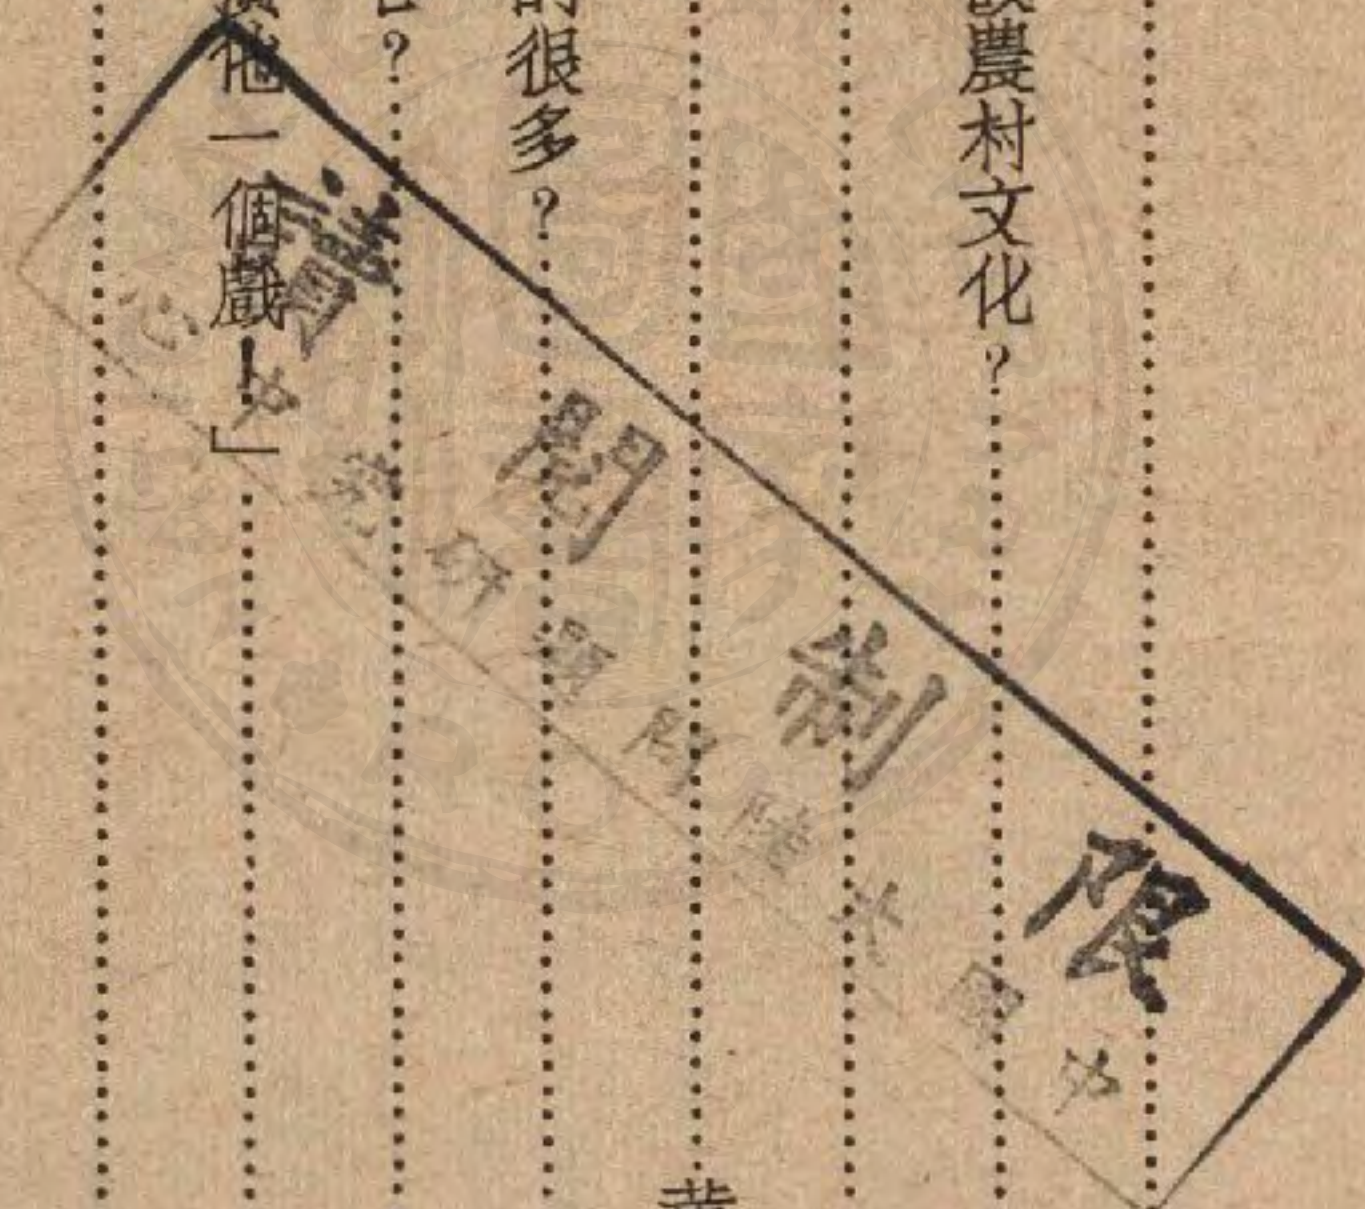 農村文化？
的很多？
？
他一個戲！」
黃
限制閱
中國大陸問題研究中心